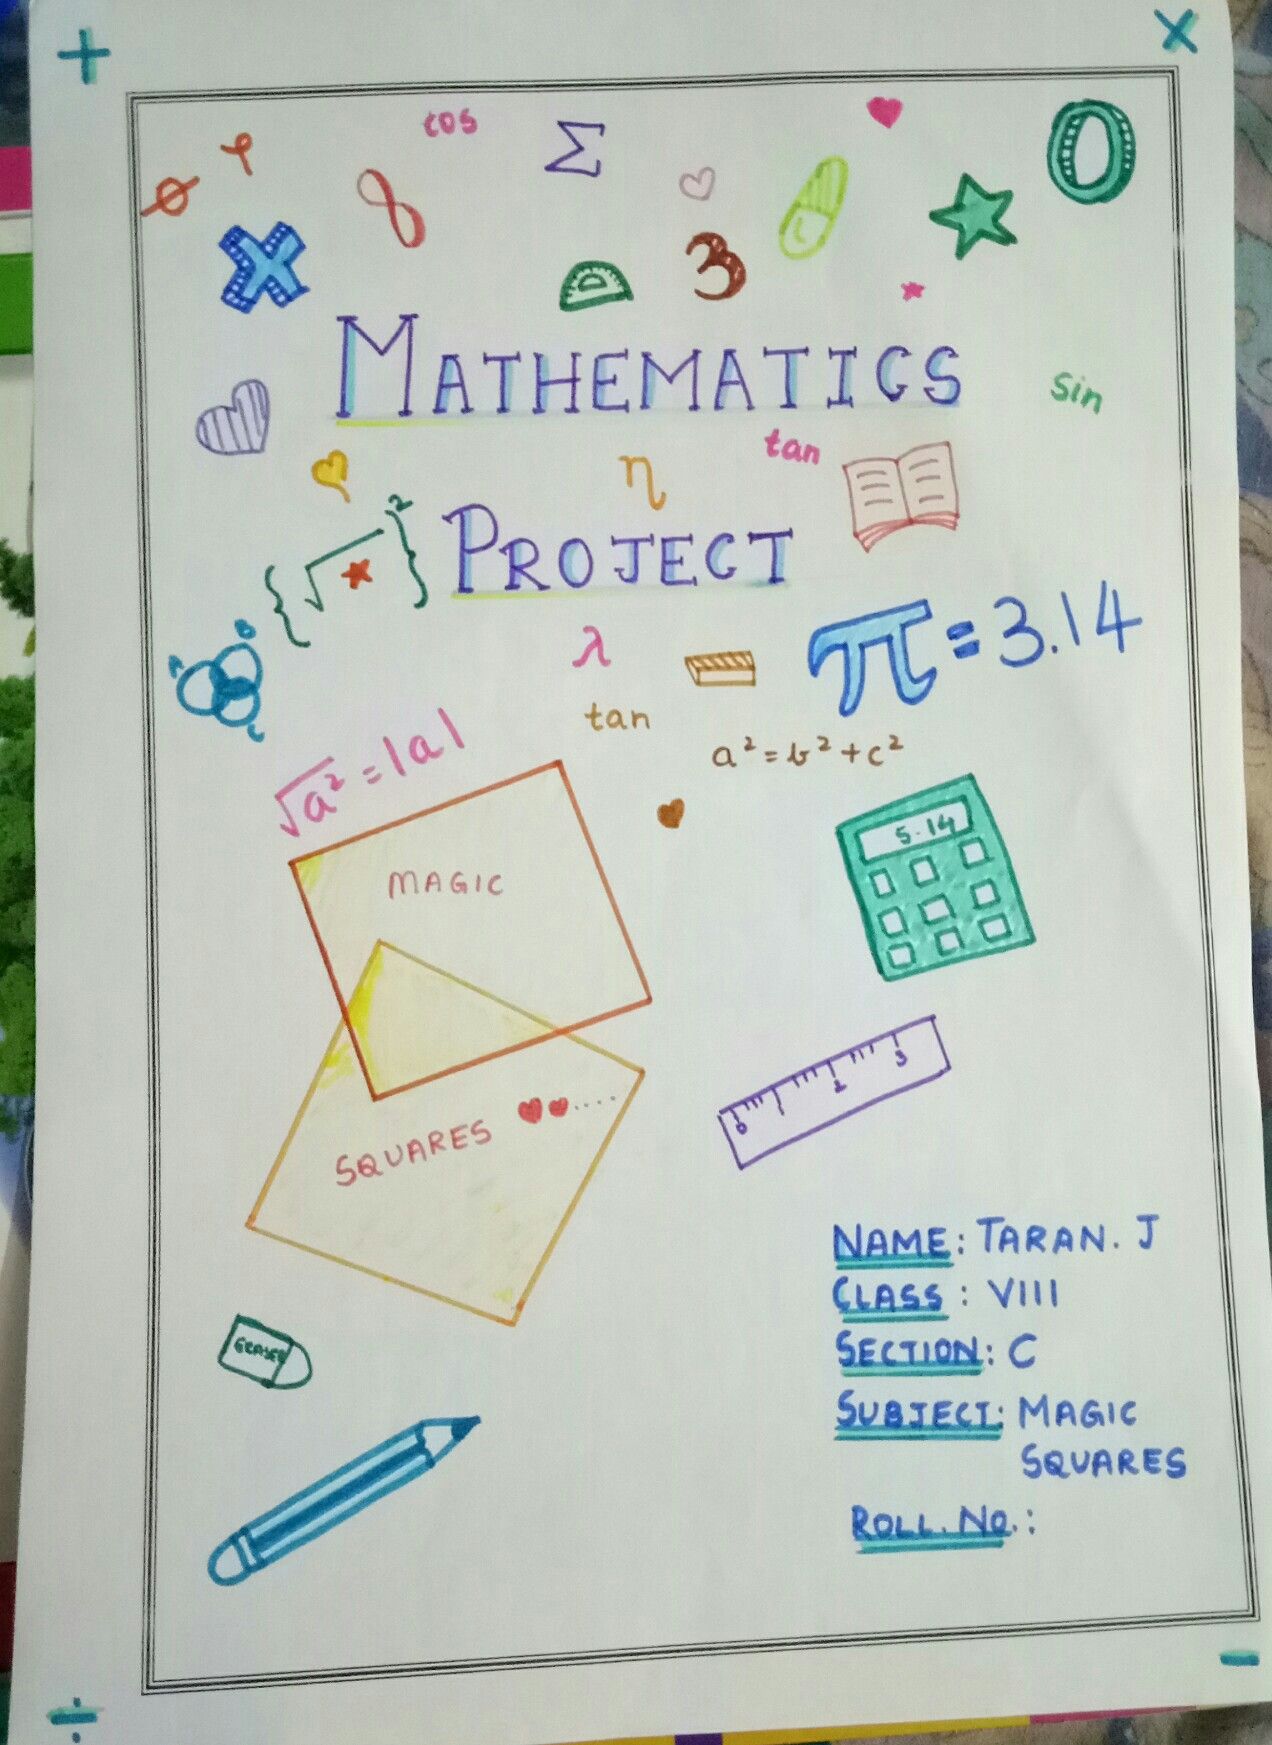 +
×
cos
Σ
φ
0
∞
x
3
MATHEMATICS
sin
tan
η
{√★}²
PROJECT
λ
π=3.14
A B
C
tan
√a² = |a|
a²=b²+c²
5.14
MAGIC
SQUARES ....
0 1 2 3
NAME: TARAN. J
CLASS: VIII
SECTION: C
SUBJECT: MAGIC
SQUARES
ROLL. NO.:
ERASER
÷
-